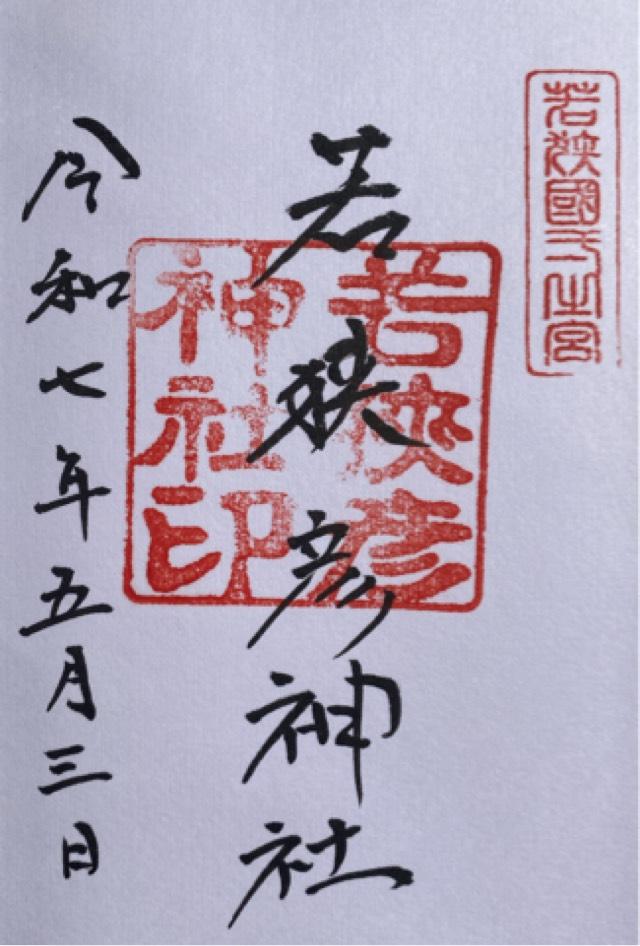 若狭國一之宮
若狭彦神社
若狭彦
神社印
令和七年五月三日